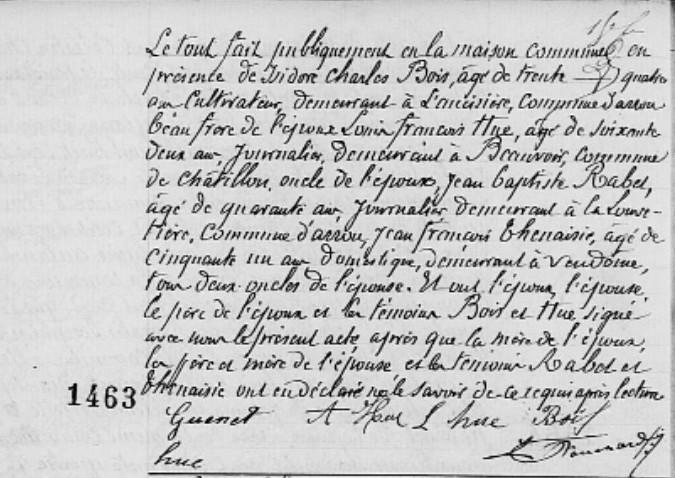 Le tout fait publiquement en la maison commune en
présence de Isidore Charles Bois, âgé de trente quatre
ans Cultivateur, demeurant à Lancisière, Commune d'arrou
beau frere de l'époux, Louis francois Hue, âgé de soixante
deux ans, Journalier, demeurant à Beauvoir, Commune
de Châtillon, oncle de l'époux, Jean baptiste Rabet,
âgé de quarante ans, Journalier demeurant à la Louve-
tière, Commune d'arrou, Jean francois Thenaisie, âgé de
Cinquante un ans Domestique, demeurant à Vendôme,
tous deux oncles de l'épouse. Et ont l'époux, l'épouse,
le père de l'époux et les témoins Bois et Hue signé
avec nous le présent acte après que la mère de l'époux,
les père et mère de l'épouse et les témoins Rabet et
Thenaisie ont en déclaré ne le savoir de ce requis après lecture
1463
Guenet A Hue L hue Bois
hue